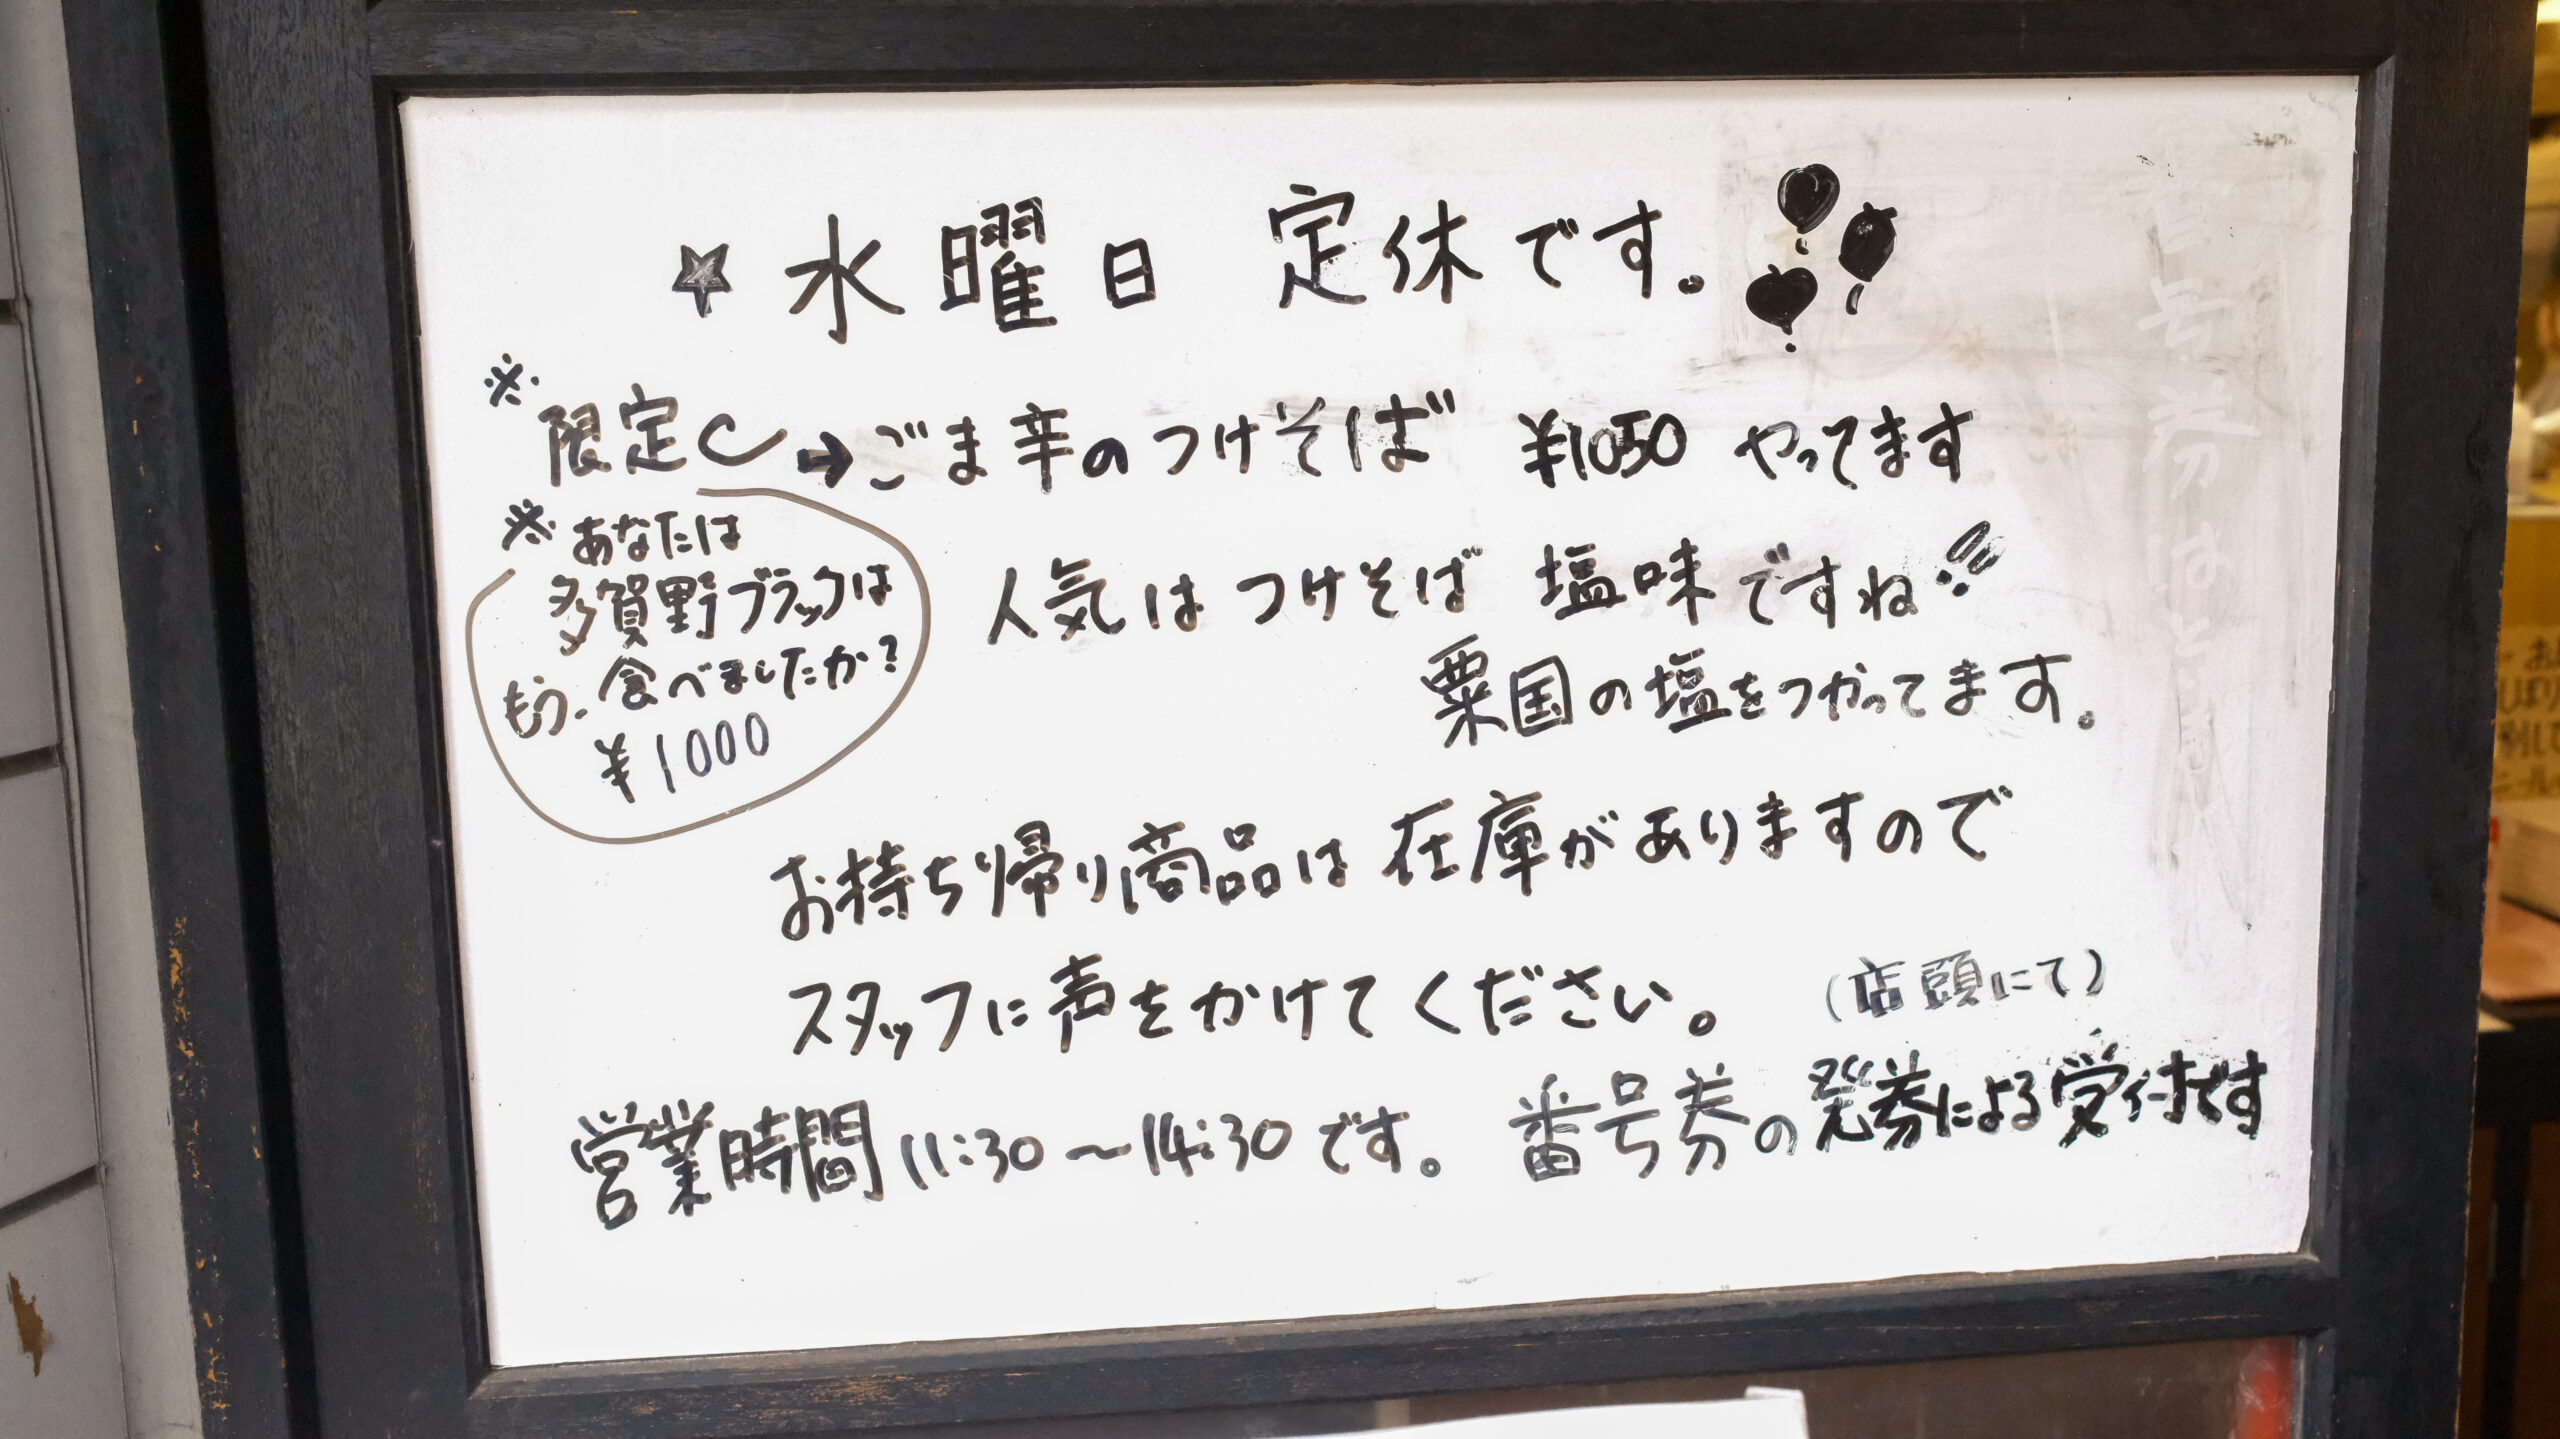 ☆水曜日 定休です。
※限定→ごま辛のつけそば ¥1050 やってます
※あなたは
多賀野ブラックは
もう、食べましたか?
¥1000
人気は つけそば 塩味ですね!!
粟国の塩をつかってます。
お持ち帰り商品は在庫がありますので
スタッフに声をかけてください。
(店頭にて)
営業時間 11:30〜14:30 です。 番号券の発券による受付です